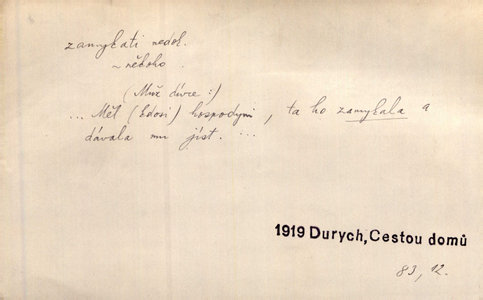 zamykati nedok.
~ někoho.
(Muž dívce:)
... Měl (kdosi) hospodyni, ta ho zamykala a
dávala mu jíst. ...
1919 Durych, Cestou domů
83, 12.